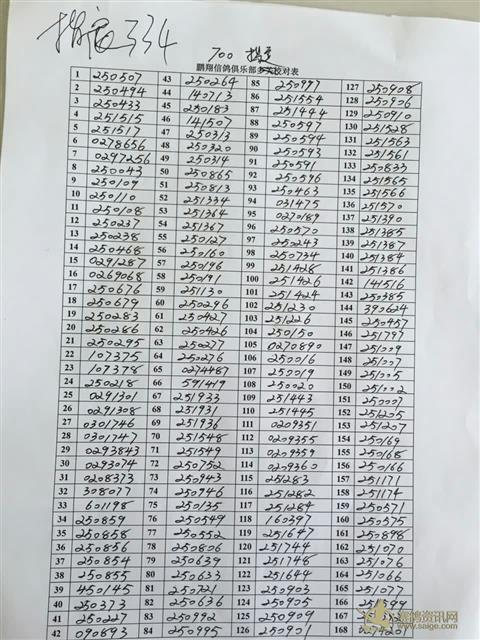 指定334
700 指定
鹏翔信鸽俱乐部多关校对表
1 250507 43 250264 85 250997 127 250908
2 250494 44 140713 86 251554 128 250906
3 250433 45 250183 87 251444 129 250910
4 251515 46 141507 88 250597 130 251528
5 251517 47 250313 89 250594 131 251563
6 0278656 48 250320 90 250543 132 251561
7 0297256 49 250314 91 250591 133 250833
8 250043 50 250865 92 250596 134 251565
9 250109 51 250813 93 250463 135 251566
10 250110 52 251334 94 031475 136 251570
11 250108 53 251364 95 0270189 137 251390
12 250237 54 251367 96 250570 138 251385
13 250238 55 250127 97 250243 139 251387
14 250468 56 250160 98 250734 140 251384
15 0291287 57 250196 99 251428 141 251386
16 0269068 58 250191 100 251426 142 141516
17 250676 59 251130 101 251424 143 250385
18 250679 60 250296 102 251230 144 390624
19 250283 61 250427 103 251226 145 250457
20 250286 62 250426 104 250150 146 251797
21 250295 63 250277 105 0270890 147 251009
22 107375 64 250276 106 250016 148 251007
23 107378 65 0274487 107 250019 149 251005
24 250218 66 591419 108 250020 150 251002
25 0291301 67 251933 109 251443 151 250007
26 0291308 68 251931 110 251445 152 251205
27 0301746 69 251936 111 0209351 153 251207
28 0301747 70 251548 112 0209355 154 250169
29 0293843 71 251549 113 0209359 155 250168
30 0293074 72 250752 114 0209360 156 250166
31 0208373 73 250943 115 251283 157 251171
32 308077 74 250946 116 251282 158 251174
33 601198 75 250135 117 251284 159 250571
34 250859 76 250549 118 160397 160 250575
35 250858 77 250552 119 251647 161 250898
36 250856 78 250806 120 251744 162 251070
37 250854 79 250639 121 251748 163 251076
38 250855 80 250633 122 251644 164 251066
39 450145 81 250721 123 250903 165 251077
40 250373 82 250636 124 250905 166
41 250227 83 250907 125 250909 167
42 090693 84 250995 126 250901 168
赛鸽资讯网
www.saige.com